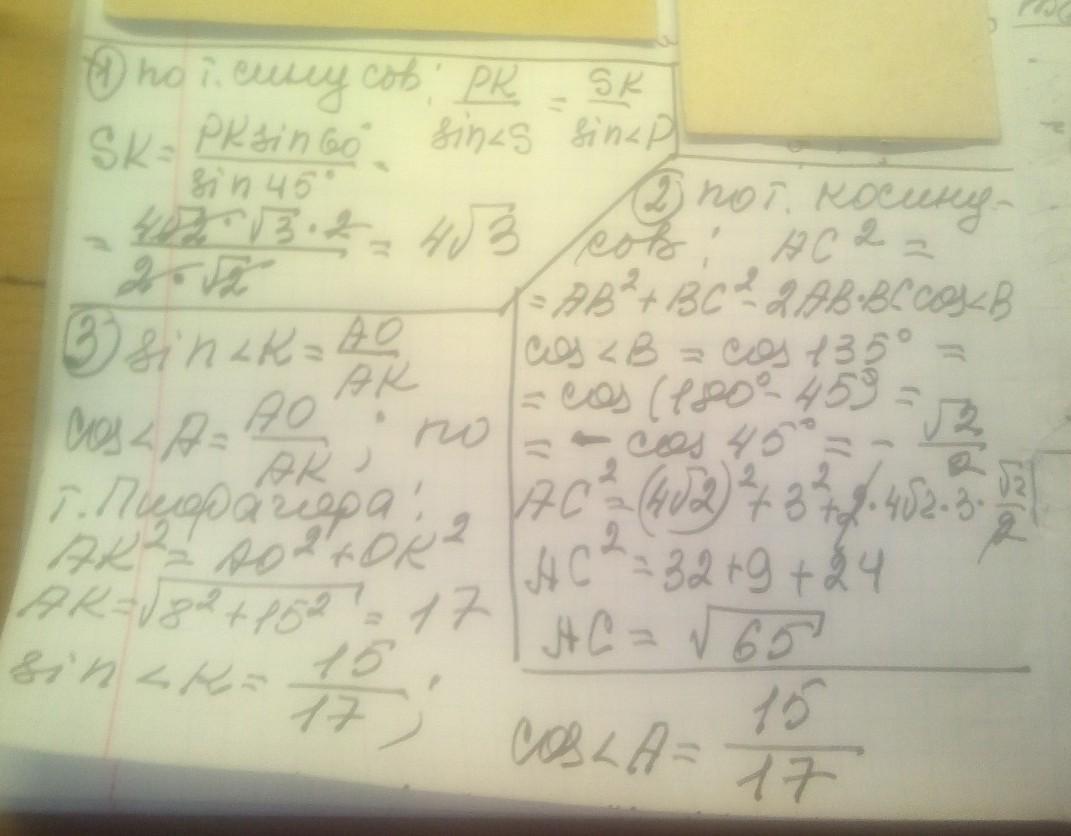 ① по т. синусов: PK/sin<S = SK/sin<P
SK = PK sin 60°/sin 45° =
= 4√2 · √3 · 2/2 · √2 = 4√3
② по т. косину-
сов: AC² =
= AB² + BC² - 2AB·BC cos<B
cos<B = cos 135° =
= cos (180° - 45°) =
= - cos 45° = - √2/2
AC² = (4√2)² + 3² + 2 · 4√2 · 3 · √2/2
AC² = 32 + 9 + 24
AC = √65
③ sin<K = AO/AK
cos<A = AO/AK; по
т. Пифагора:
AK² = AO² + OK²
AK = √8² + 15² = 17
sin<K = 15/17;
cos<A = 15/17